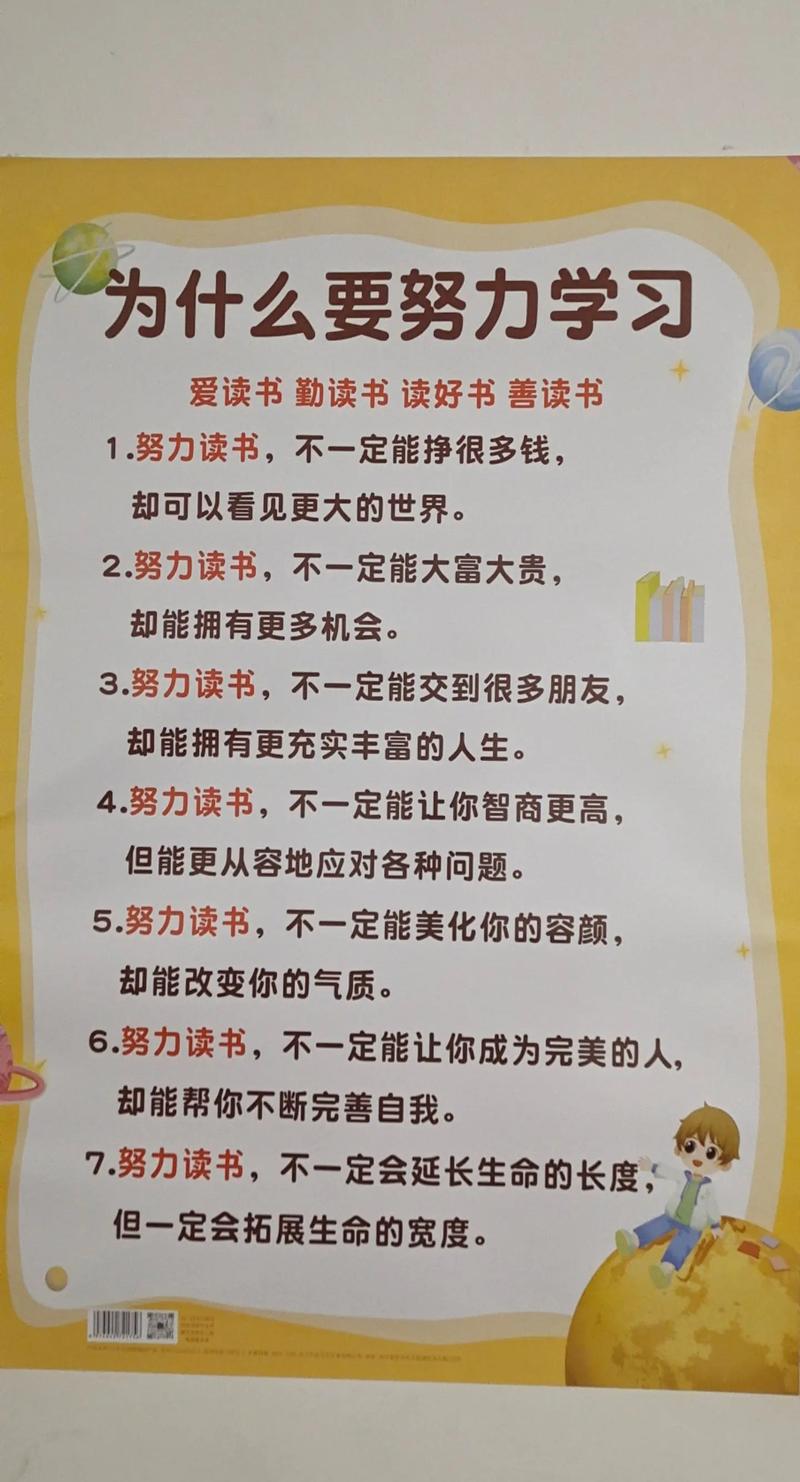 为什么要努力学习
爱读书 勤读书 读好书 善读书
1.努力读书，不一定能挣很多钱，
却可以看见更大的世界。
2.努力读书，不一定能大富大贵，
却能拥有更多机会。
3.努力读书，不一定能交到很多朋友，
却能拥有更充实丰富的人生。
4.努力读书，不一定能让你智商更高，
但能更从容地应对各种问题。
5.努力读书，不一定能美化你的容颜，
却能改变你的气质。
6.努力读书，不一定能让你成为完美的人，
却能帮你不断完善自我。
7.努力读书，不一定会延长生命的长度，
但一定会拓展生命的宽度。